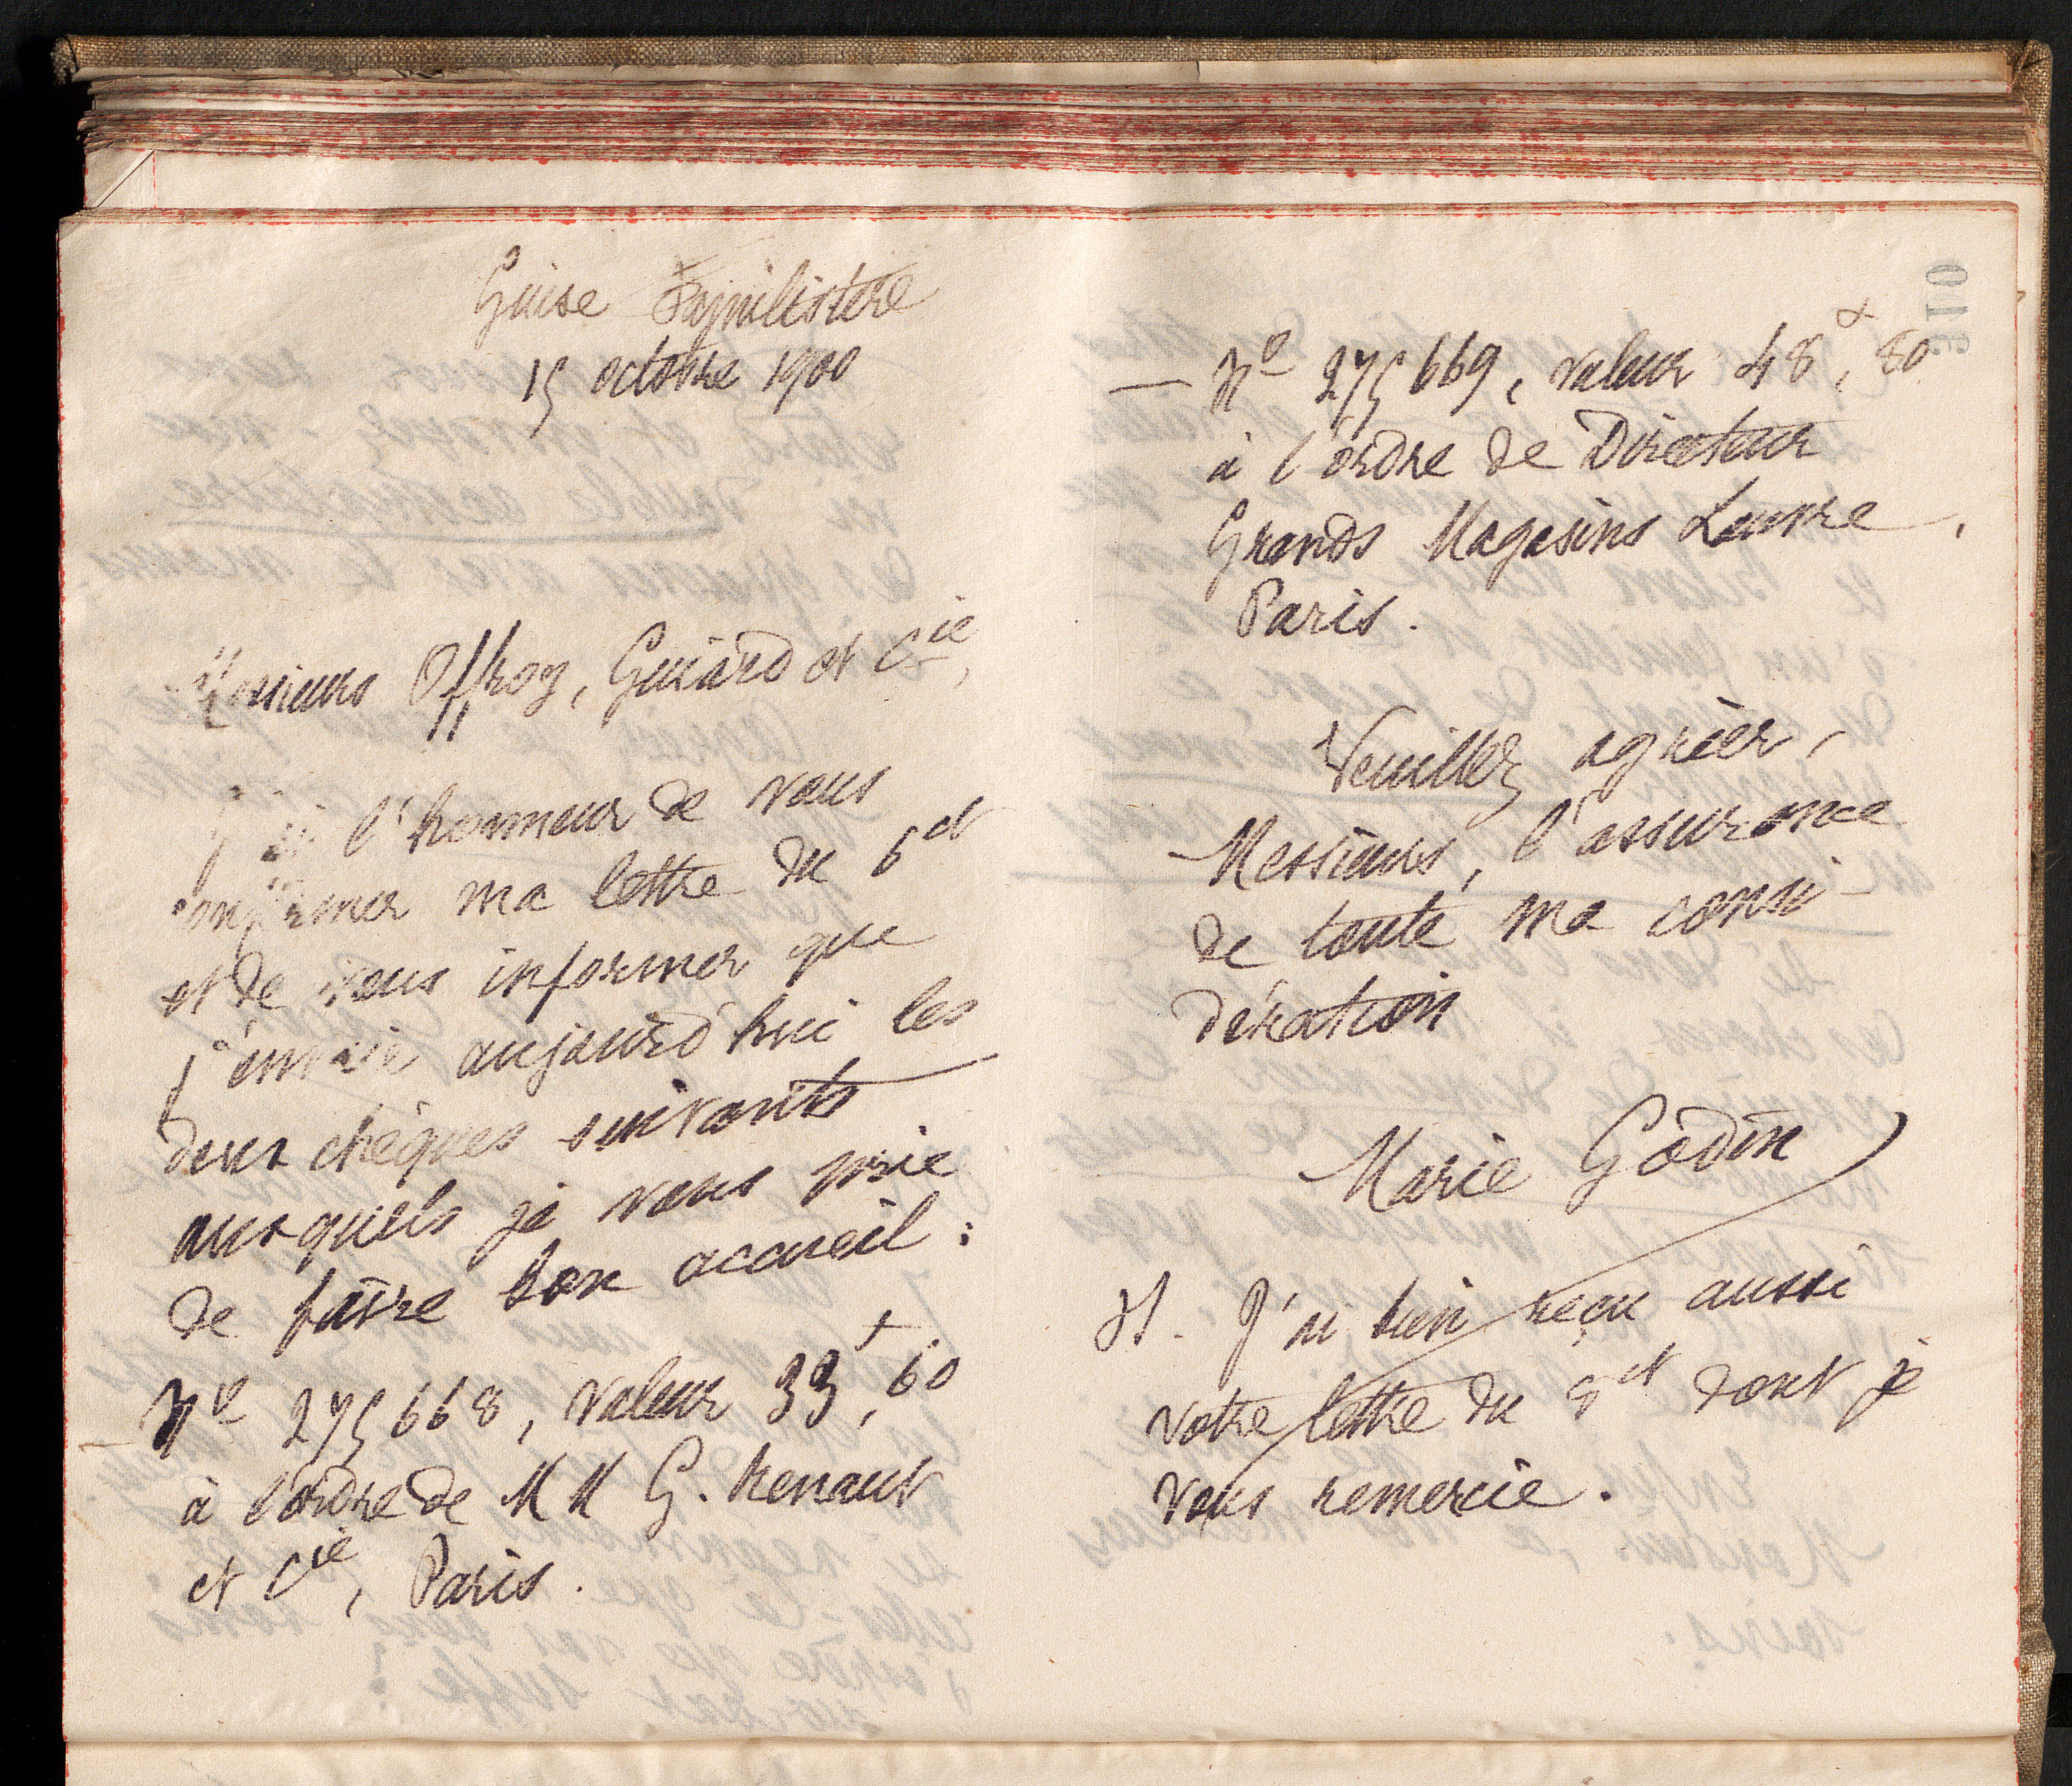 Guise Familistère
15 octobre 1900
Messieurs Offroy, Guiard et Cie,
J'ai l'honneur de vous
confirmer ma lettre du 6 ct
et de vous informer que
j'envoie aujourd'hui les
deux chèques suivants
auxquels je vous prie
de faire bon accueil :
Nº 275668, valeur 33f,60
à l'ordre de MM G. Renault
et Cie, Paris.
— Nº 275669, valeur 48f,80
à l'ordre de Directeur
Grands Magasins Louvre,
Paris.
Veuillez agréer,
Messieurs, l'assurance
de toute ma consi-
dération
Marie Godin
J'ai bien reçu aussi
votre lettre du ct dont je
vous remercie.